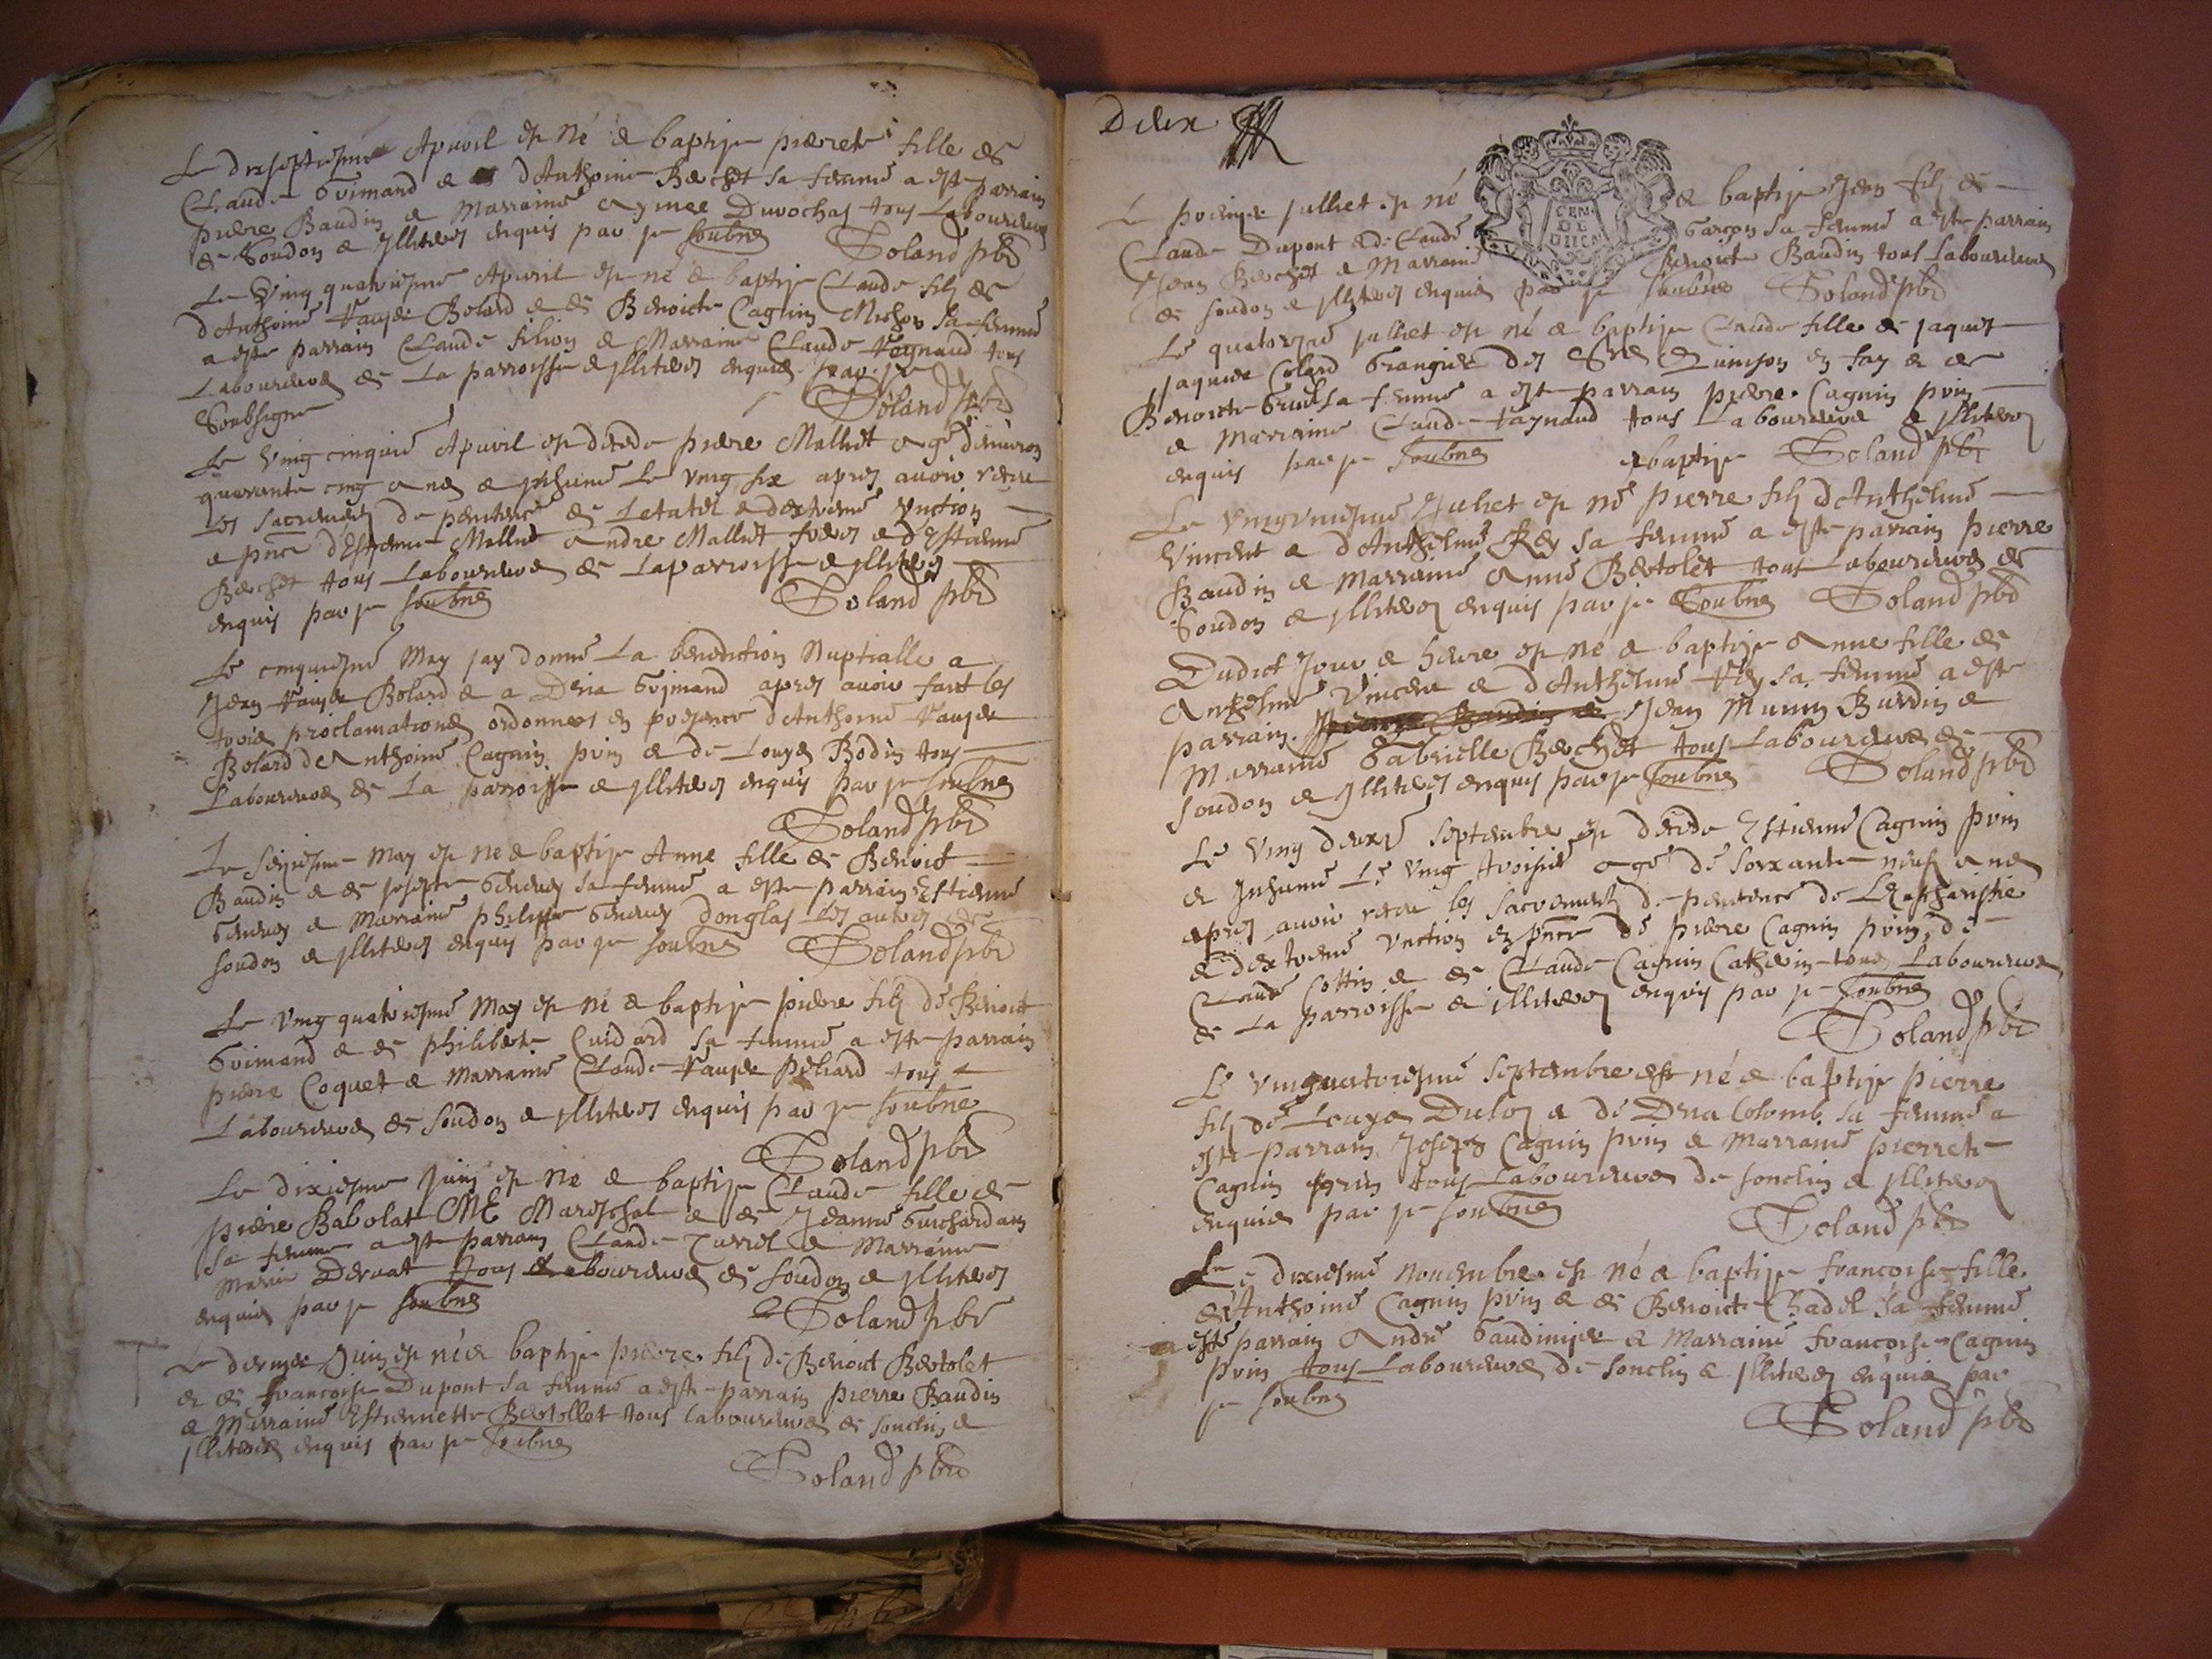 Le dixseptiesme Apuril est né & baptise pierrete fille de
Claude Guimand & d'Anthoine Berchet sa femme a este parrain
pierre Baudin & Marraine aymee Durochas tous Laboureurs
de Soudon & Illiteres enquis par je soubne Goland pbr
Le Ving quatriesme Apuril est né & baptise Claude filz de
d'Anthoine Bolard & de Benoicte Cagnin Michon sa femme
a este parrain Claude filion & Marraine Claude Reynaud tous
Laboureurs de La parroisse & Illiteres enquis par je
Soubsigne Goland pbr
Le Ving cinquie Apuril est decede pierre Mallut agé denuiron
quarante cinq ans & Inhumé Le ving six apres auoir receu
les sacrements de penitence de & dextreme Vnction
& pnce d'Estienne Mallut Andre Mallut freres & d'Estienne
Berchet tous Laboureurs de La parroisse & Illiteres
enquis par je soubne Goland pbr
Le cinquiesme May jay donné La benediction Nuptialle a
Jean Bolard & a Dria Guimand apres auoir faict les
trois proclamations ordonnees en presence d'Anthoine
Bolard de Anthoine Cagnin prin & de Louys Bodin tous
Laboureurs de La parroisse & Illiteres enquis par je soubne
Goland pbr
Le Seiziesme May est né & baptise Anne fille de Benoict
Baudin & de Josepte sa femme a este parrain Estienne
& Marraine philippe donglas les autres de
soudon & Illiteres enquis par je soubne Goland pbr
Le Ving quatriesme May est né & baptise pierre filz de Benoict
Guimand & de philiberte Cuidard sa femme a este parrain
pierre Coquet & Marraine Claude peliard tous
Laboureurs de Soudon & Illiteres enquis par je soubne
Goland pbr
Le dixiesme Juin est né & baptise Claude fille de
pierre Babolat ME Mareschal & de Jeanne Guichardam
sa femme a este parrain Claude Turrel & Marraine
Marie Deruat tous Laboureurs de Soudon & Illiteres
enquis par je soubne Goland pbr
Le dernier Juin est né & baptise pierre filz de Benoict Bertolet
& de francoise Dupont sa femme a este parrain pierre Baudin
& Marraine Estiennette Bertollet tous laboureurs de sonclin &
Illiteres enquis par je soubne
Goland pbr
Deux
GEN
DE
Le premier Julliet est né & baptise Jean filz de
Claude Dupont & de Claude Garcon sa femme a este parrain
Jean Berchet & Marraine Benoicte Baudin tous Laboureurs
de soudon & Illiteres enquis par je soubne Goland pbr
Le quatorzie julliet est né & baptise Claude fille de jaques
Jaquier Colard Grangier des en fay & de
Benoicte Gruel sa femme a este parrain pierre Cagnin prin
& Marraine Claude Raynaud tous Laboureurs & Illiteres
enquis par je soubne & baptise Goland pbr
Le vingvniesme Juliet est né pierre filz d'Anthelme
Vincent & d'Anthelme Rey sa femme a este parrain pierre
Baudin & Marraine Anne Bertolet tous Laboureurs de
Soudon & Illiteres enquis par je Soubne Goland pbr
Dudict Jour & heure est né & baptise Anne fille de
Anthelme Vincent & d'Anthelme Rey sa femme a este
parrain pierre Baudin & Jean Munin Burdin &
Marraine Gabrielle Berchet tous Laboureurs de
soudon & Illiteres enquis par je soubne Goland pbr
Le Ving deuxie septembre est decede Estienne Cagnin prin
& Inhumé Le Ving troisie agé de soixante neuf ans
apres auoir receu les sacrements de penitence de Leucharistie
& dextreme vnction en pnce de pierre Cagnin prin, de
Claude Cottin & de Claude Cagnin Catherin tous Laboureurs
de La parroisse & illiteres enquis par je soubne
Goland pbr
Le vinquatriesme septembre est né & baptise pierre
filz de Louys Dulos & de Dria Colomb sa femme a
este parrain Joseph Cagnin prin & Marraine pierrete
Cagnin prin tous Laboureurs de sonclin & Illiteres
enquis par je soubne Goland pbr
Le dixiesme nouembre est né & baptise francoise fille
d'Anthoine Cagnin prin & de Benoicte Chadel sa femme
este parrain André Gaudinier & Marraine francoise Cagnin
prin tous Laboureurs de sonclin & Illiteres enquis par
je soubne
Goland pbr